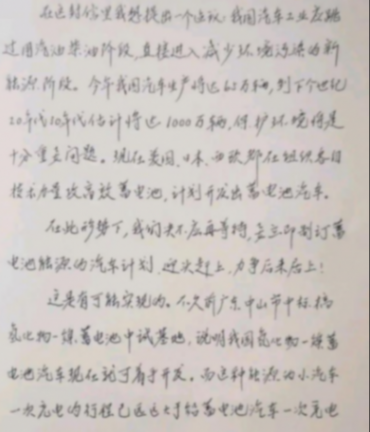 在这封信里我想提出一个建议：我国汽车工业应跳
过用汽油柴油阶段，直接进入减少环境污染的新
能源阶段。今年我国汽车生产将达62万辆，到下个世纪
20年代10年代估计将达1000万辆，保护环境将是
十分重要问题。现在美国、日本、西欧都在组织各自
技术力量攻高效蓄电池，计划开发出蓄电池汽车。
在此形势下，我们决不应再等待，要立即制订蓄
电池能源的汽车计划，迎头赶上，力争后来居上！
这是有可能实现的。不久前广东中山市中标，搞
氢化物—镍蓄电池中试基地，说明我国氢化物—镍蓄
电池汽车现在就可着手开发。而这种能源的小汽车
一次充电的行程已远远大于铅蓄电池汽车一次充电